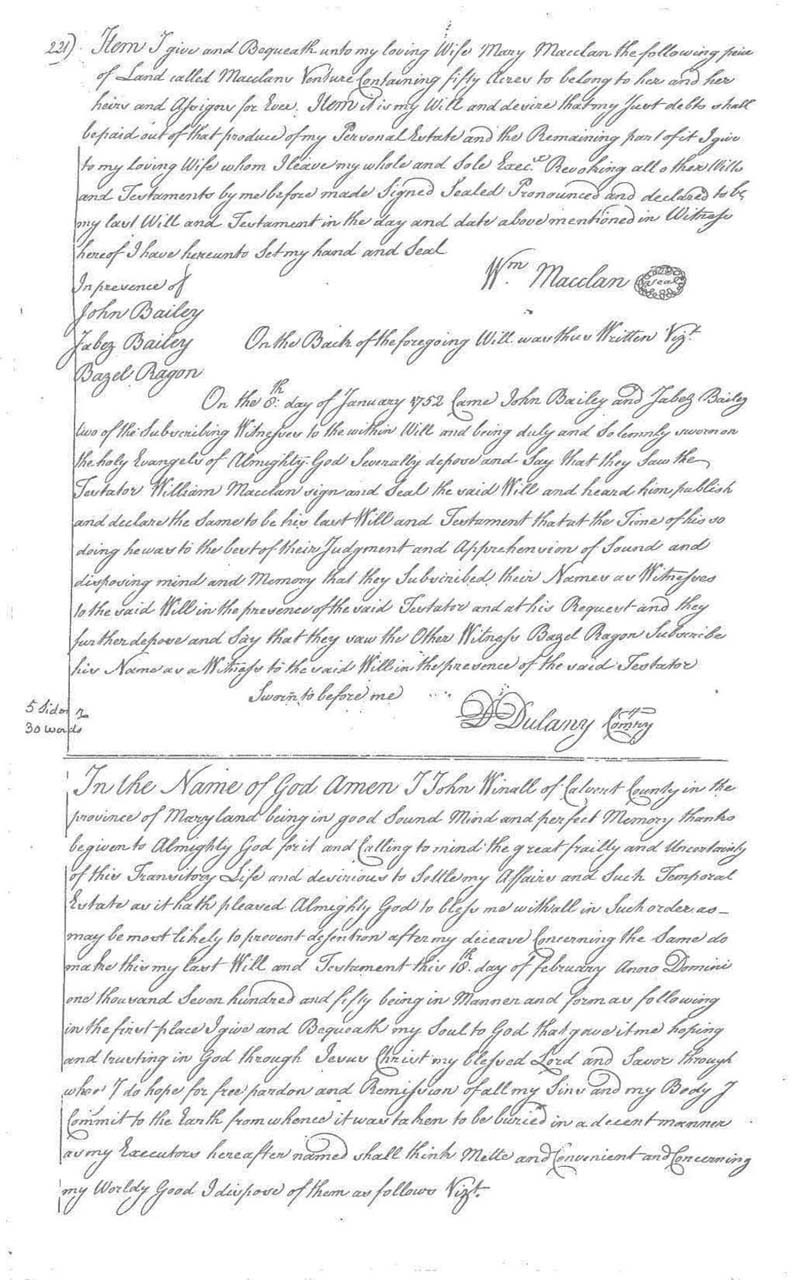 221). Item I give and Bequeath unto my loving Wife Mary Macclan the following peice
of Land called Macclans Venture Containing fifty Acres to belong to her and her
heirs and Assigns for Ever. Item it is my Will and desire that my Just debts shall
be paid out of that produce of my Personal Estate and the Remaining part of it I give
to my loving Wife whom I leave my whole and Sole Exec.x Revoking all other Wills
and Testaments by me before made Signed Sealed Pronounced and declared to be
my last Will and Testament in the day and date above mentioned in Witness
hereof I have hereunto Set my hand and Seal
In presence of
Wm. Macclan seal
John Bailey
Jabez Bailey On the Back of the foregoing Will was thus Written Vizt.
Bazel Ragon
On the 8th. day of January 1752 Came John Bailey and Jabez Bailey
two of the Subscribing Witnesses to the within Will and being duly and Solemnly sworn on
the holy Evangels of Almighty God Severally depose and Say that they Saw the
Testator William Macclan sign and Seal the said Will and heard him publish
and declare the Same to be his last Will and Testament that at the Time of his so
doing he was to the best of their Judgment and Apprehension of Sound and
disposing mind and Memory that they Subscribed their Names as Witnesses
to the said Will in the presence of the said Testator and at his Request and they
further depose and Say that they saw the Other Witness Bazel Ragon Subscribe
his Name as a Witness to the said Will in the presence of the said Testator
Sworn to before me
5 Sides
30 words
D Dulany Comry
In the Name of God Amen I John Winall of Calvert County in the
province of Maryland being in good Sound Mind and perfect Memory thanks
be given to Almighty God for it and Calling to mind the great frailly and Uncertainty
of this Transitory Life and desirious to Settle my Affairs and Such Temporal
Estate as it hath pleased Almighty God to bless me withall in Such order as
may be most likely to prevent desention after my decease Concerning the Same do
make this my last Will and Testament this 18th. day of February Anno Domini
one thousand Seven hundred and fifty being in Manner and form as following
in the first place I give and Bequeath my Soul to God that gave it me hoping
and trusting in God through Jesus Christ my blessed Lord and Savor through
whoe I do hope for free pardon and Remission of all my Sins and my Body I
Commit to the Earth from whence it was taken to be buried in a decent manner
as my Executors hereafter named shall think Mette and Convenient and Concerning
my Worldy Good I dispose of them as follows Vizt.